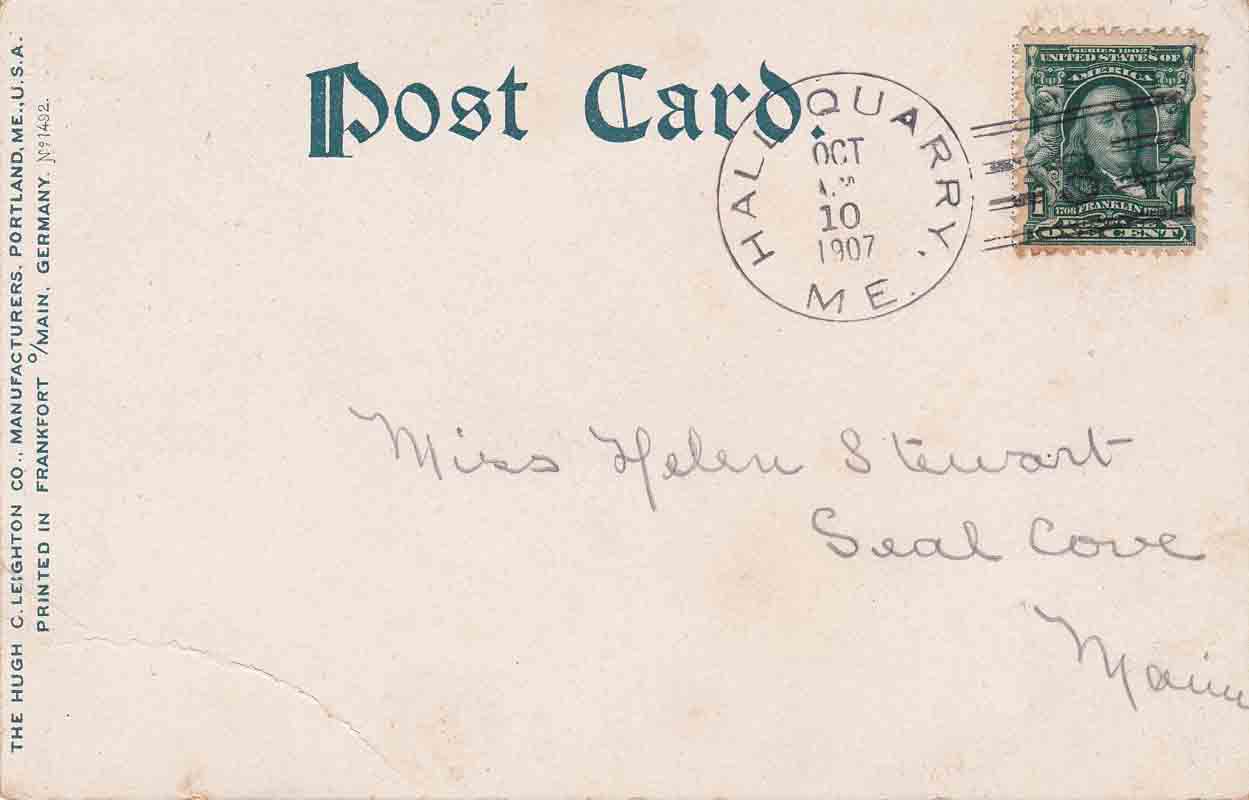 THE HUGH C. LEIGHTON CO., MANUFACTURERS, PORTLAND, ME., U.S.A.
PRINTED IN FRANKFORT O/MAIN, GERMANY. No 1492.
Post Card.
HALL QUARRY,
OCT
10
1907
ME.
SERIES 1902
UNITED STATES OF
AMERICA
1706 FRANKLIN 1790
1 1
ONE CENT
Miss Helen Stewart
Seal Cove
Maine